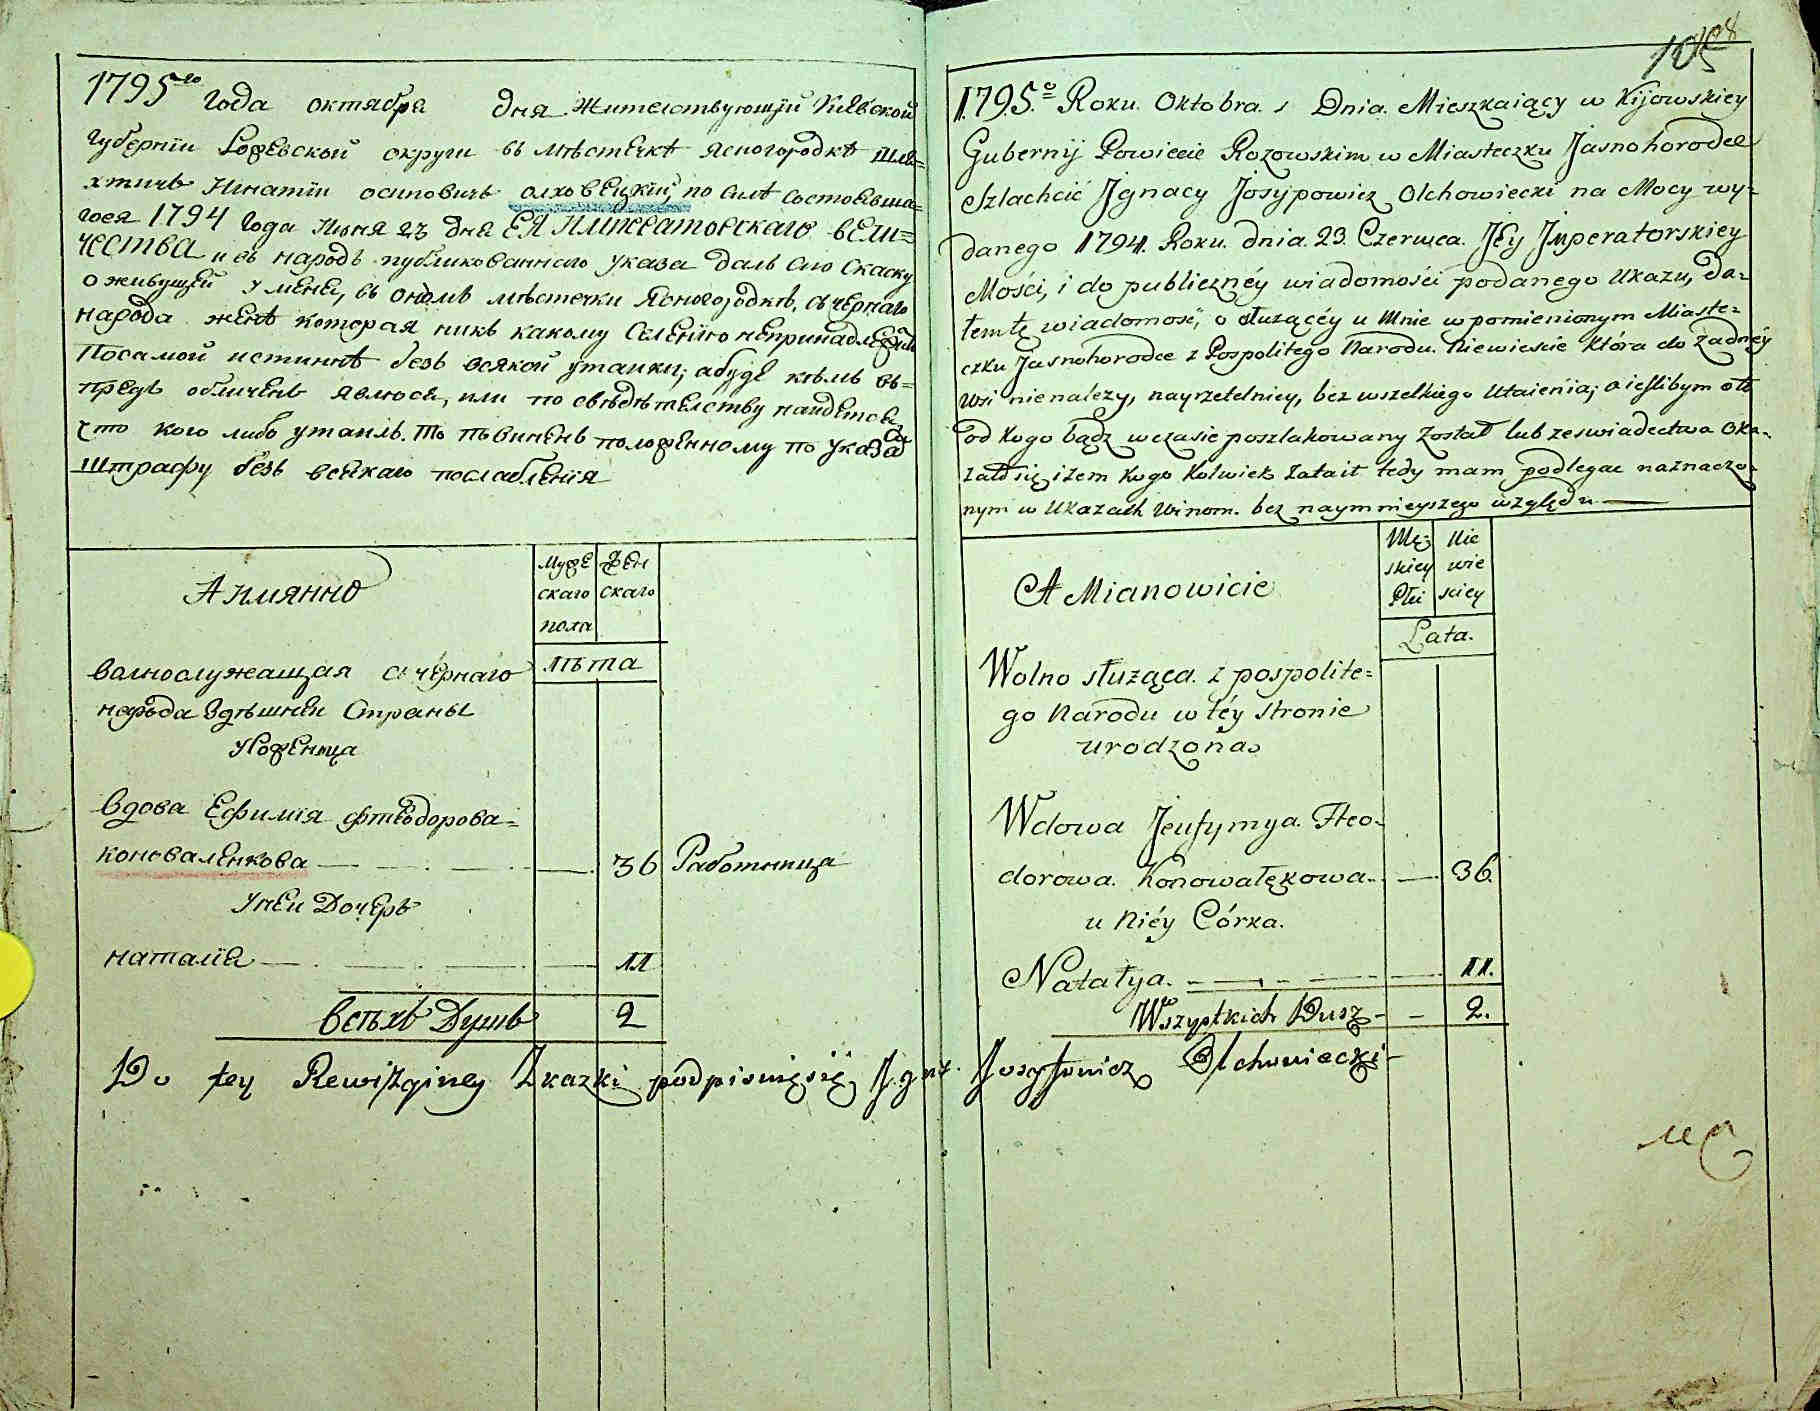 1795го года октября дня Жителствующiй Кiевской
Губернiи Рожевской округи въ мѣстечкѣ Ясногородкѣ шля=
хтичь Игнатiи осиповичь олховецкiй по силѣ состоявша=
гося 1794 года Июня 23 дня ЕЯ ИМПЕРАТОРСКАГО ВЕЛИ=
ЧЕСТВА и въ народъ публикованнаго указа далъ сию скаску
о живущей у мене, въ ономъ мѣстечки Ясногородкѣ, съ чернаго
народа женѣ которая никъ какому Селенiю непринадлежитъ
Посамой истиннѣ безъ всякой утаики; абуде кѣмъ въ=
предъ обличенъ явлюся, или по свѣдѣтелству наидется
что кого либо утаилъ. То повиненъ положенному по указа
штрафу безъ всякаго послабленiя
Аимянно
Муже
скаго
пола
Жен
скаго
лѣта
волнослужащая съ чернаго
народа Здѣшнеи Страны
Уроженица
вдова Ефимiя фтеодорова=
коноваленкова 36 Работница
Унеи Дочерь
наталiя 11
Всѣхъ Душъ 2
Do tey Rewizyiney Skazki podpisuię się Ignt. Josyfowicz Olchowiecki
105
1795.o Roku. Oktobra. 1 Dnia. Mieszkaiący w Kijowskiey
Gubernij Powiecie Rozowskim w Miasteczku Jasnohorodce
Szlachcić Jgnacy Josypowicz Olchowiecki na Mocy wy=
danego 1794. Roku. dnia. 23. Czerwca. Jey Jmperatorskiey
Mości, i do publiczney wiadomości podanego Ukazu, da=
łem tę wiadomość, o służącéy u Mnie w pomienionym Miaste=
czku Jasnohorodce z Pospolitego Narodu. Niewieście która do żadnéy
Wsi nienależy, nayrzetelniey, bez wszelkiego Utaienia; a ieślibym oto
od kogo bądz wczasie poszlakowany został lub ze swiadectwa oka=
zało się iżem kogo kolwiek zataił tedy mam podlegac naznaczo=
nym w Ukazach Winom. bez naymnieyszego względu
A Mianowicie
Mę=
skiey
Płci
Nie
wie
sciey
Lata.
Wolno służąca. z pospolite=
go Narodu w téy stronie
urodzona
Wdowa Jeufymya. Fteo=
dorowa. Konowałękowa. 36.
u Niéy Córka.
Natałya. 11.
Wszystkich Dusz 2.